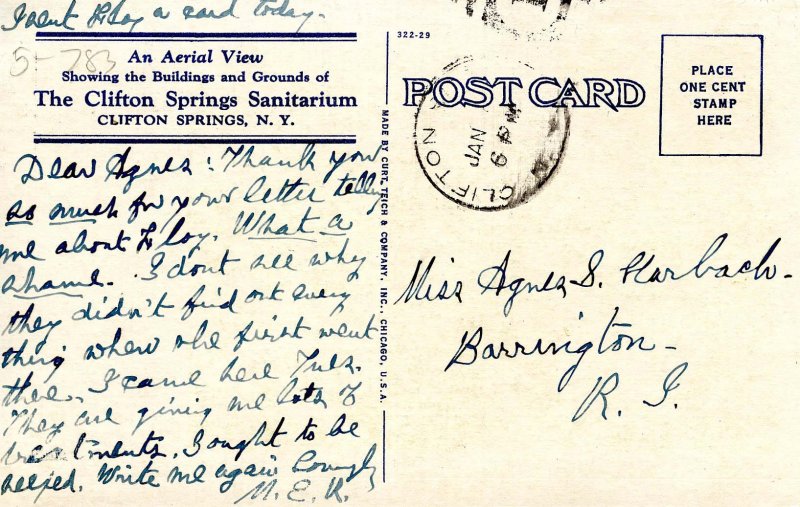 I sent Floy a card today.
5-783
An Aerial View
Showing the Buildings and Grounds of
The Clifton Springs Sanitarium
CLIFTON SPRINGS, N. Y.
Dear Agnes: Thank you
so much for your letter telling
me about Floy. What a
shame. I dont see why
they didn't find out every
thing where she first went
there. I came here Tues.
They are giving me lots of
treatments. I ought to be
helped. Write me again
M. E. K.
MADE BY CURT TEICH & COMPANY, INC., CHICAGO, U.S.A.
322-29
POST CARD
CLIFTON
JAN
6 PM
N.
PLACE
ONE CENT
STAMP
HERE
Miss Agnes S. Harbach
Barrington
R. I.